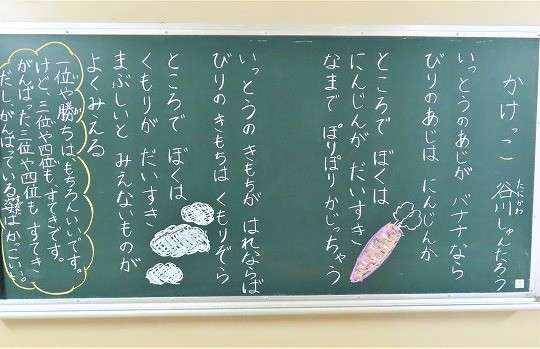 かけっこ　谷川しゅんたろう
たにかわ
いっとうのあじが　バナナなら
びりのあじは　にんじんか
ところで　ぼくは
にんじんが　だいすき
なまで　ぽりぽりかじっちゃう
いっとうの　きもちが　はれならば
びりの　きもちは　くもりぞら
ところで　ぼくは
くもりが　だいすき
まぶしいと　みえないものが
よく　みえる
一位や勝ちはもちろんいいです。
けど、三位や四位もすてきです。
がんばった三位や四位も　すてき
だし、がんばっている姿はかっこいい。
すがた